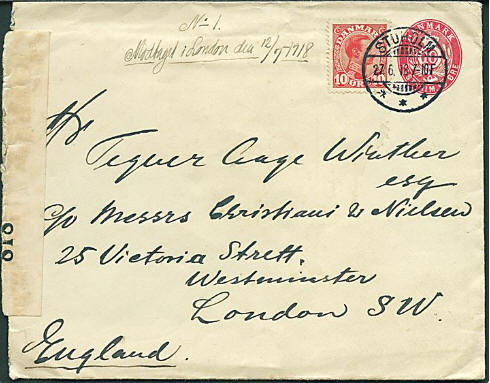 No 1.
Modtaget i London den 12/7-1918
DANMARK
10 ØRE 10
DANMARK
ØRE
27.6.18.7-10F
Hr
Aage Winther
esq
c/o Messrs Christiani & Nielsen
25 Victoria Strett.
Westminster
London SW.
England.